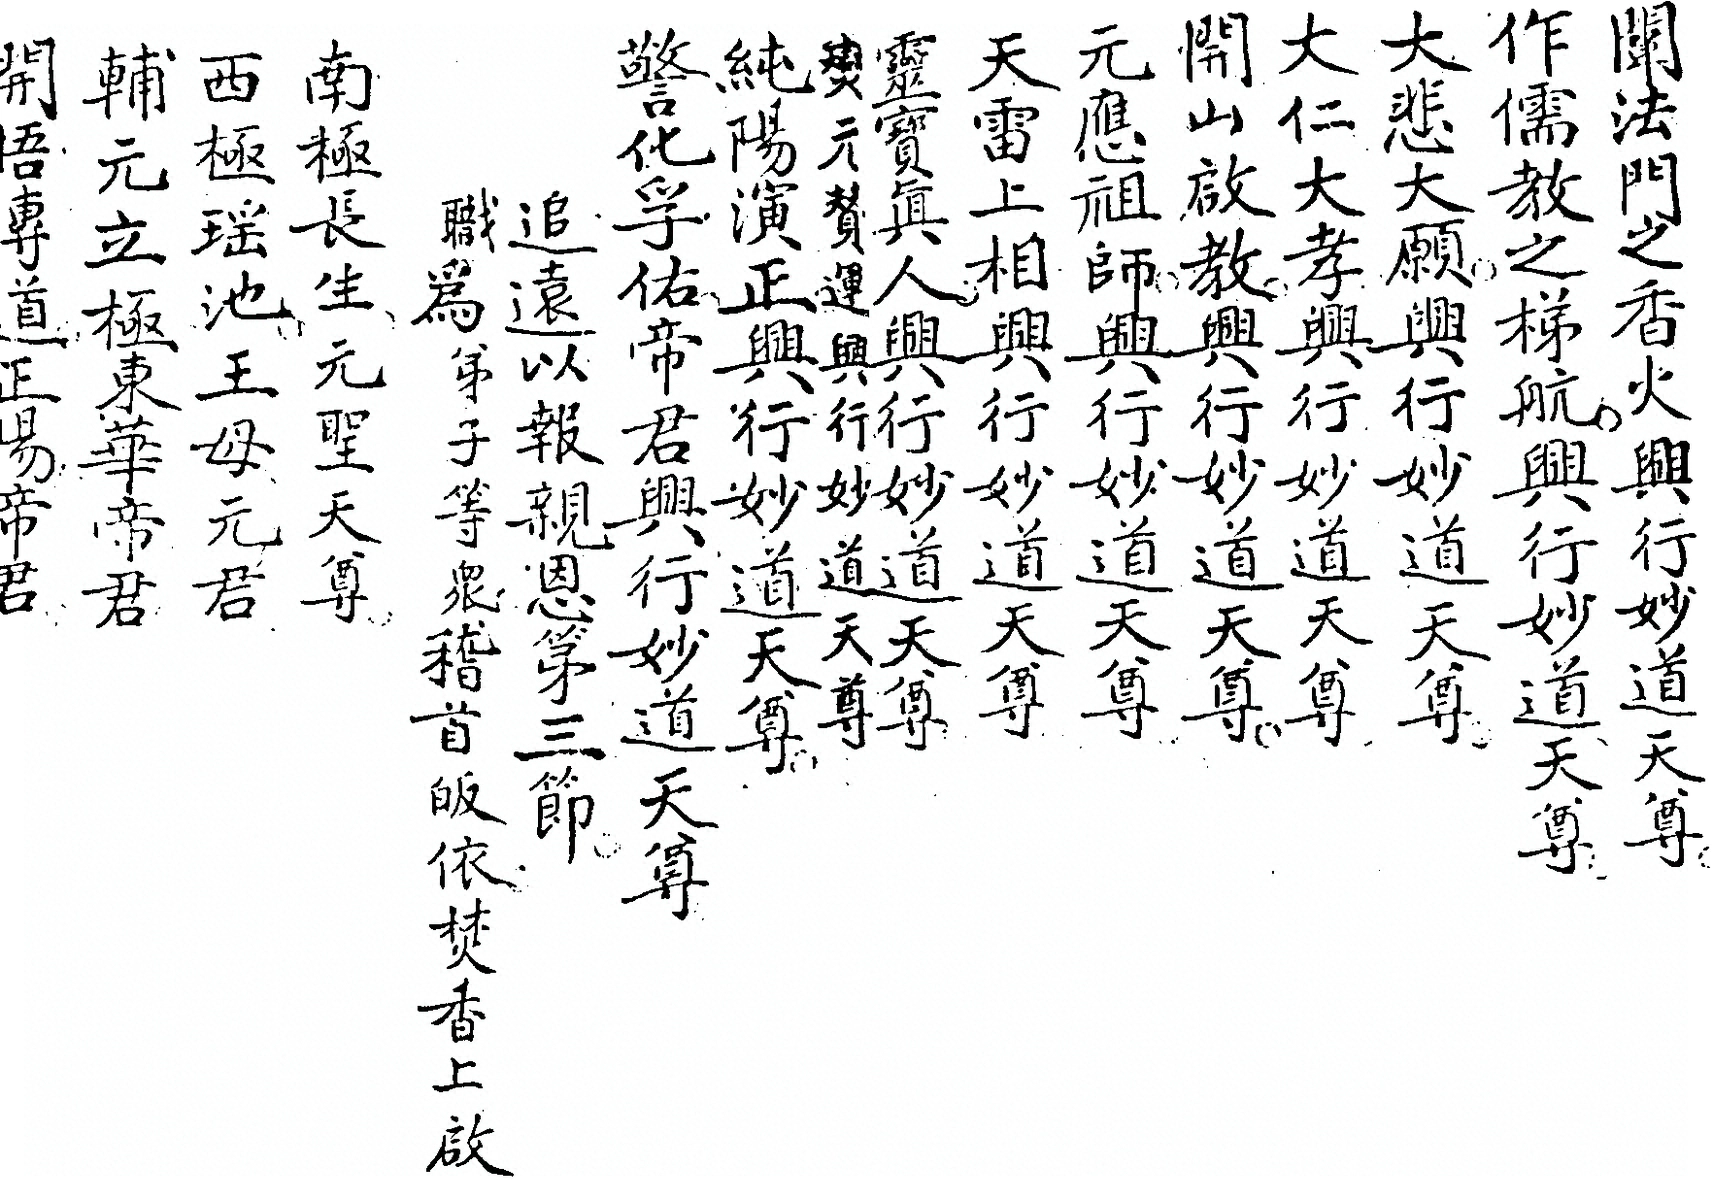 闡法門之香火興行妙道天尊
作儒教之梯航興行妙道天尊
大悲大願興行妙道天尊
大仁大孝興行妙道天尊
開山啟教興行妙道天尊
元應祖師興行妙道天尊
天雷上相興行妙道天尊
靈寶眞人興行妙道天尊
爕元贊運興行妙道天尊
純陽演正興行妙道天尊
警化孚佑帝君興行妙道天尊
追遠以報親恩第三節
職爲弟子等眾稽首皈依焚香上啟
南極長生元聖天尊
西極瑶池王母元君
輔元立極東華帝君
開悟專道正昜帝君